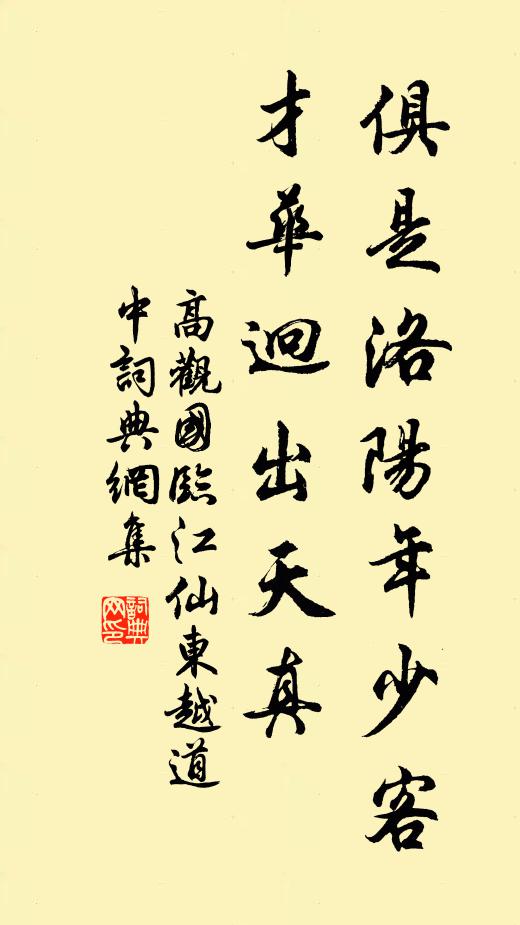 俱是洛陽年少客
才華迥出天真
高觀國臨江仙東越道
中詞典網集
詞典網印